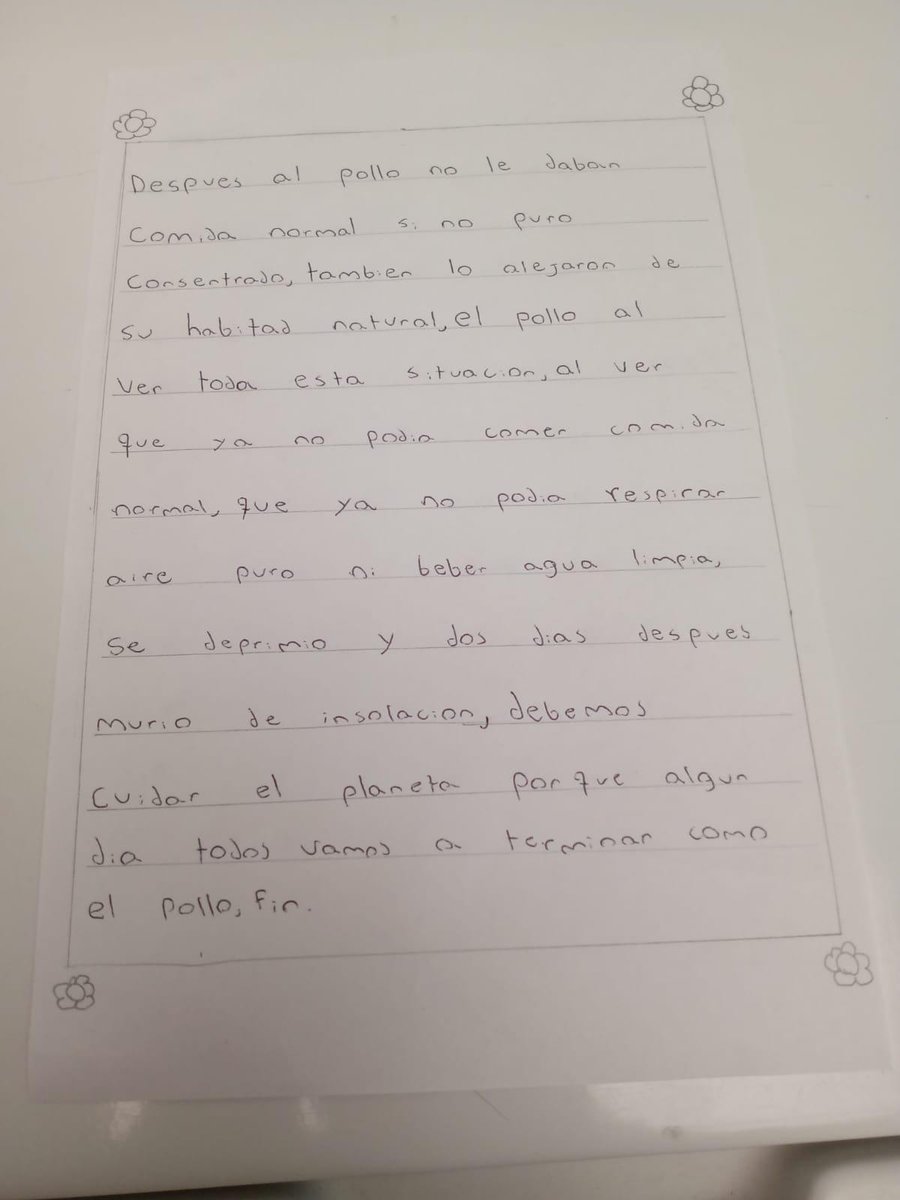 Despues al pollo no le daban
Comida normal si no puro
Consentrado, tambien lo alejaron de
su habitad natural, el pollo al
ver toda esta situacion, al ver
que ya no podia comer comida
normal, que ya no podia respirar
aire puro ni beber agua limpia,
se deprimio y dos dias despues
murio de insolacion, debemos
Cuidar el planeta porque algun
dia todos vamos a terminar como
el pollo, fin.